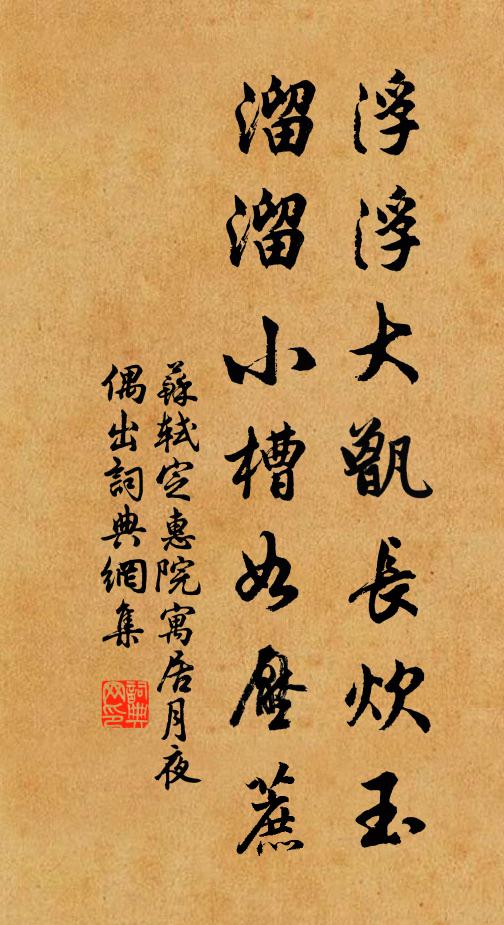 浮浮大甑長炊玉
溜溜小槽如壓蔗
蘇軾定惠院寓居月夜
偶出詞典網集
詞典
网印